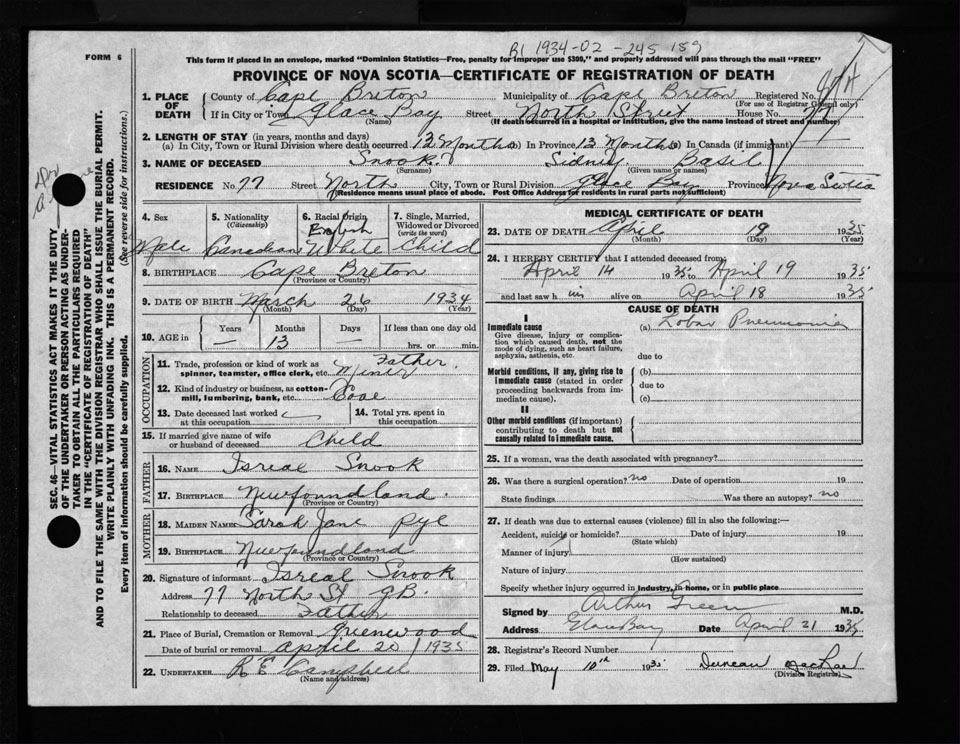 B1 1934-02-245159
FORM 6
This form if placed in an envelope, marked "Dominion Statistics—Free, penalty for improper use $300," and properly addressed will pass through the mail "FREE"
PROVINCE OF NOVA SCOTIA—CERTIFICATE OF REGISTRATION OF DEATH
1. PLACE OF DEATH
County of Cape Breton Municipality of Cape Breton Registered No.
(For use of Registrar General only)
If in City or Town Glace Bay Street North Street House No. 77
(Name) (If death occurred in a hospital or institution, give the name instead of street and number)
2. LENGTH OF STAY (in years, months and days)
(a) In City, Town or Rural Division where death occurred 13 Months (b) In Province 13 Months (c) In Canada (if immigrant)
3. NAME OF DECEASED Snook Sidney Basil
(Surname) (Given name or names)
RESIDENCE No. 77 Street North City, Town or Rural Division Glace Bay Province Nova Scotia
(Residence means usual place of abode. Post Office Address for residents in rural parts not sufficient)
4. Sex 5. Nationality 6. Racial Origin 7. Single, Married, Widowed or Divorced
(Citizenship) English (write the word)
Male Canadian White Child
8. BIRTHPLACE Cape Breton
(Province or Country)
9. DATE OF BIRTH March 26 1934
(Month) (Day) (Year)
10. AGE in Years Months Days If less than one day old
— 13 — hrs. or min.
OCCUPATION
11. Trade, profession or kind of work as spinner, teamster, office clerk, etc. Father Miner
12. Kind of industry or business, as cotton-mill, lumbering, bank, etc. Coal
13. Date deceased last worked at this occupation
14. Total yrs. spent in this occupation
15. If married give name of wife or husband of deceased Child
FATHER
16. NAME Isreal Snook
17. BIRTHPLACE Newfoundland
(Province or Country)
MOTHER
18. MAIDEN NAME Sarah Jane Pye
19. BIRTHPLACE Newfoundland
(Province or Country)
20. Signature of informant Isreal Snook
Address 77 North St G.B.
Relationship to deceased Father
21. Place of Burial, Cremation or Removal Greenwood
Date of burial or removal April 20 1935
22. UNDERTAKER R E Campbell
(Name and address)
MEDICAL CERTIFICATE OF DEATH
23. DATE OF DEATH April 19 1935
(Month) (Day) (Year)
24. I HEREBY CERTIFY that I attended deceased from:
April 14 1935 to April 19 1935
and last saw him alive on April 18 1935
CAUSE OF DEATH
I
Immediate cause (a) Lobar Pneumonia
Give disease, injury or complication which caused death, not the mode of dying, such as heart failure, asphyxia, asthenia, etc.
due to
Morbid conditions, if any, giving rise to immediate cause (stated in order proceeding backwards from immediate cause).
(b)
due to
(c)
II
Other morbid conditions (if important) contributing to death but not causally related to immediate cause.
25. If a woman, was the death associated with pregnancy?
26. Was there a surgical operation? no Date of operation 19
State findings Was there an autopsy? no
27. If death was due to external causes (violence) fill in also the following:—
Accident, suicide or homicide? Date of injury 19
(State which)
Manner of injury
(How sustained)
Nature of injury
Specify whether injury occurred in industry, in home, or in public place
Signed by Arthur Green M.D.
Address Glace Bay Date April 21 1935
28. Registrar's Record Number
29. Filed May 10th 1935 Duncan MacRae
(Division Registrar)
SEC. 46—VITAL STATISTICS ACT MAKES IT THE DUTY
OF THE UNDERTAKER OR PERSON ACTING AS UNDER-
TAKER TO OBTAIN ALL THE PARTICULARS REQUIRED
IN THE "CERTIFICATE OF REGISTRATION OF DEATH"
AND TO FILE THE SAME WITH THE DIVISION REGISTRAR WHO SHALL ISSUE THE BURIAL PERMIT.
WRITE PLAINLY WITH UNFADING INK. THIS IS A PERMANENT RECORD.
Every item of information should be carefully supplied. (See reverse side for instructions.)